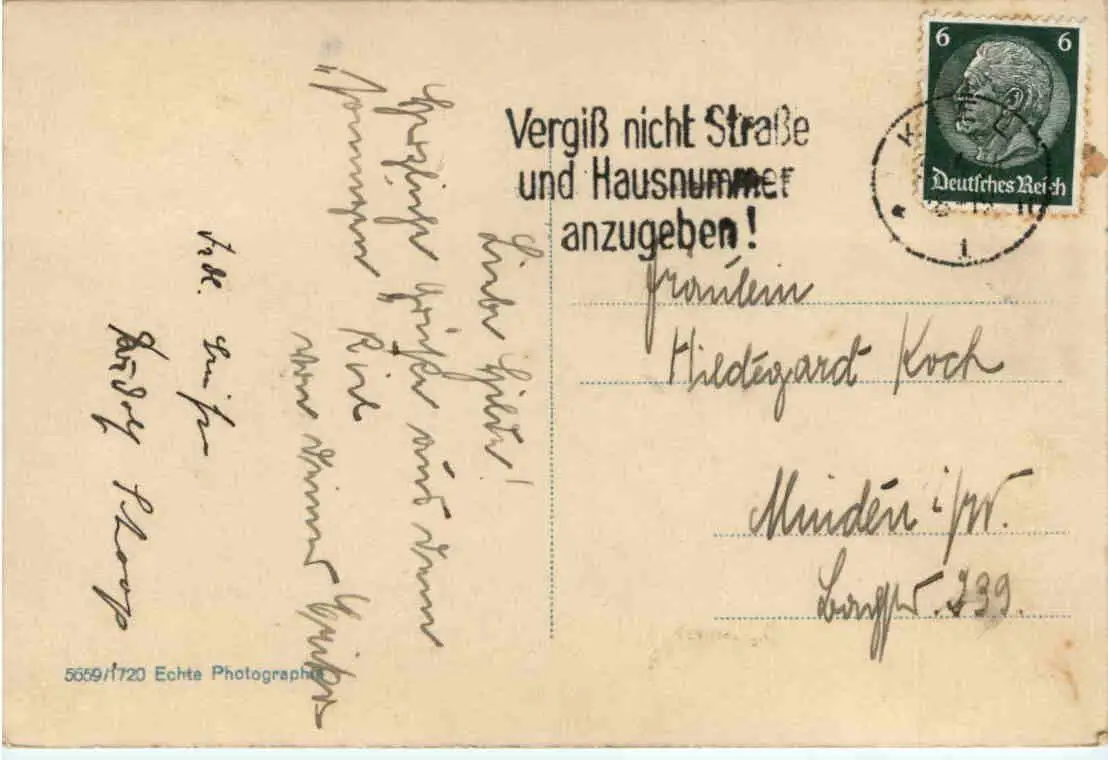 6 6
Deutsches Reich
Vergiß nicht Straße
und Hausnummer
anzugeben!
Liebe Hilde!
Herzliche Grüße aus dem
„sonnigen“ Kiel
von
Rudolf Schoop.
Fräulein
Hildegard Koch
Minden i/W.
239.
5659/1720 Echte Photographie